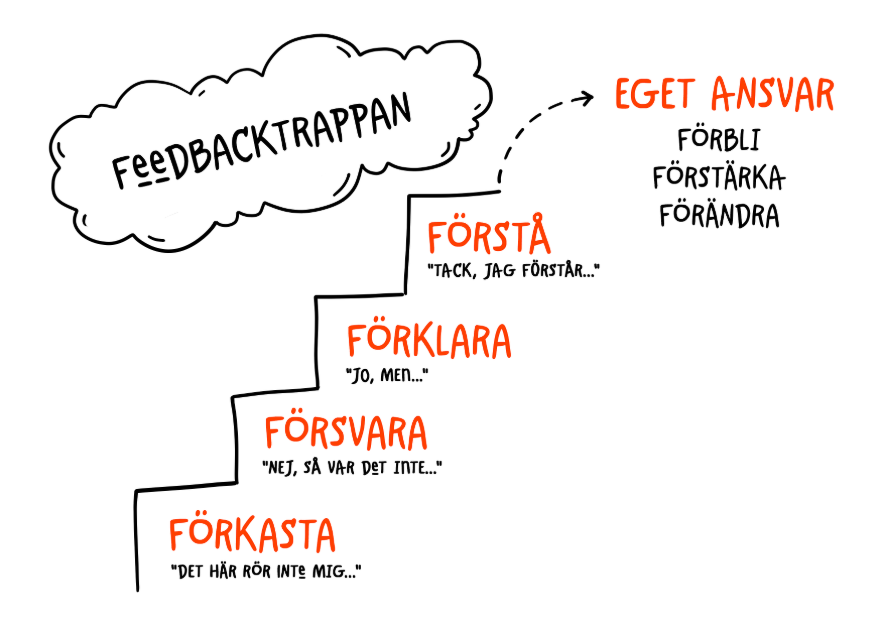 FEEDBACKTRAPPAN
EGET ANSVAR
FÖRBLI
FÖRSTÄRKA
FÖRÄNDRA
FÖRSTÅ
"TACK, JAG FÖRSTÅR..."
FÖRKLARA
"JO, MEN..."
FÖRSVARA
"NEJ, SÅ VAR DET INTE..."
FÖRKASTA
"DET HÄR RÖR INTE MIG..."